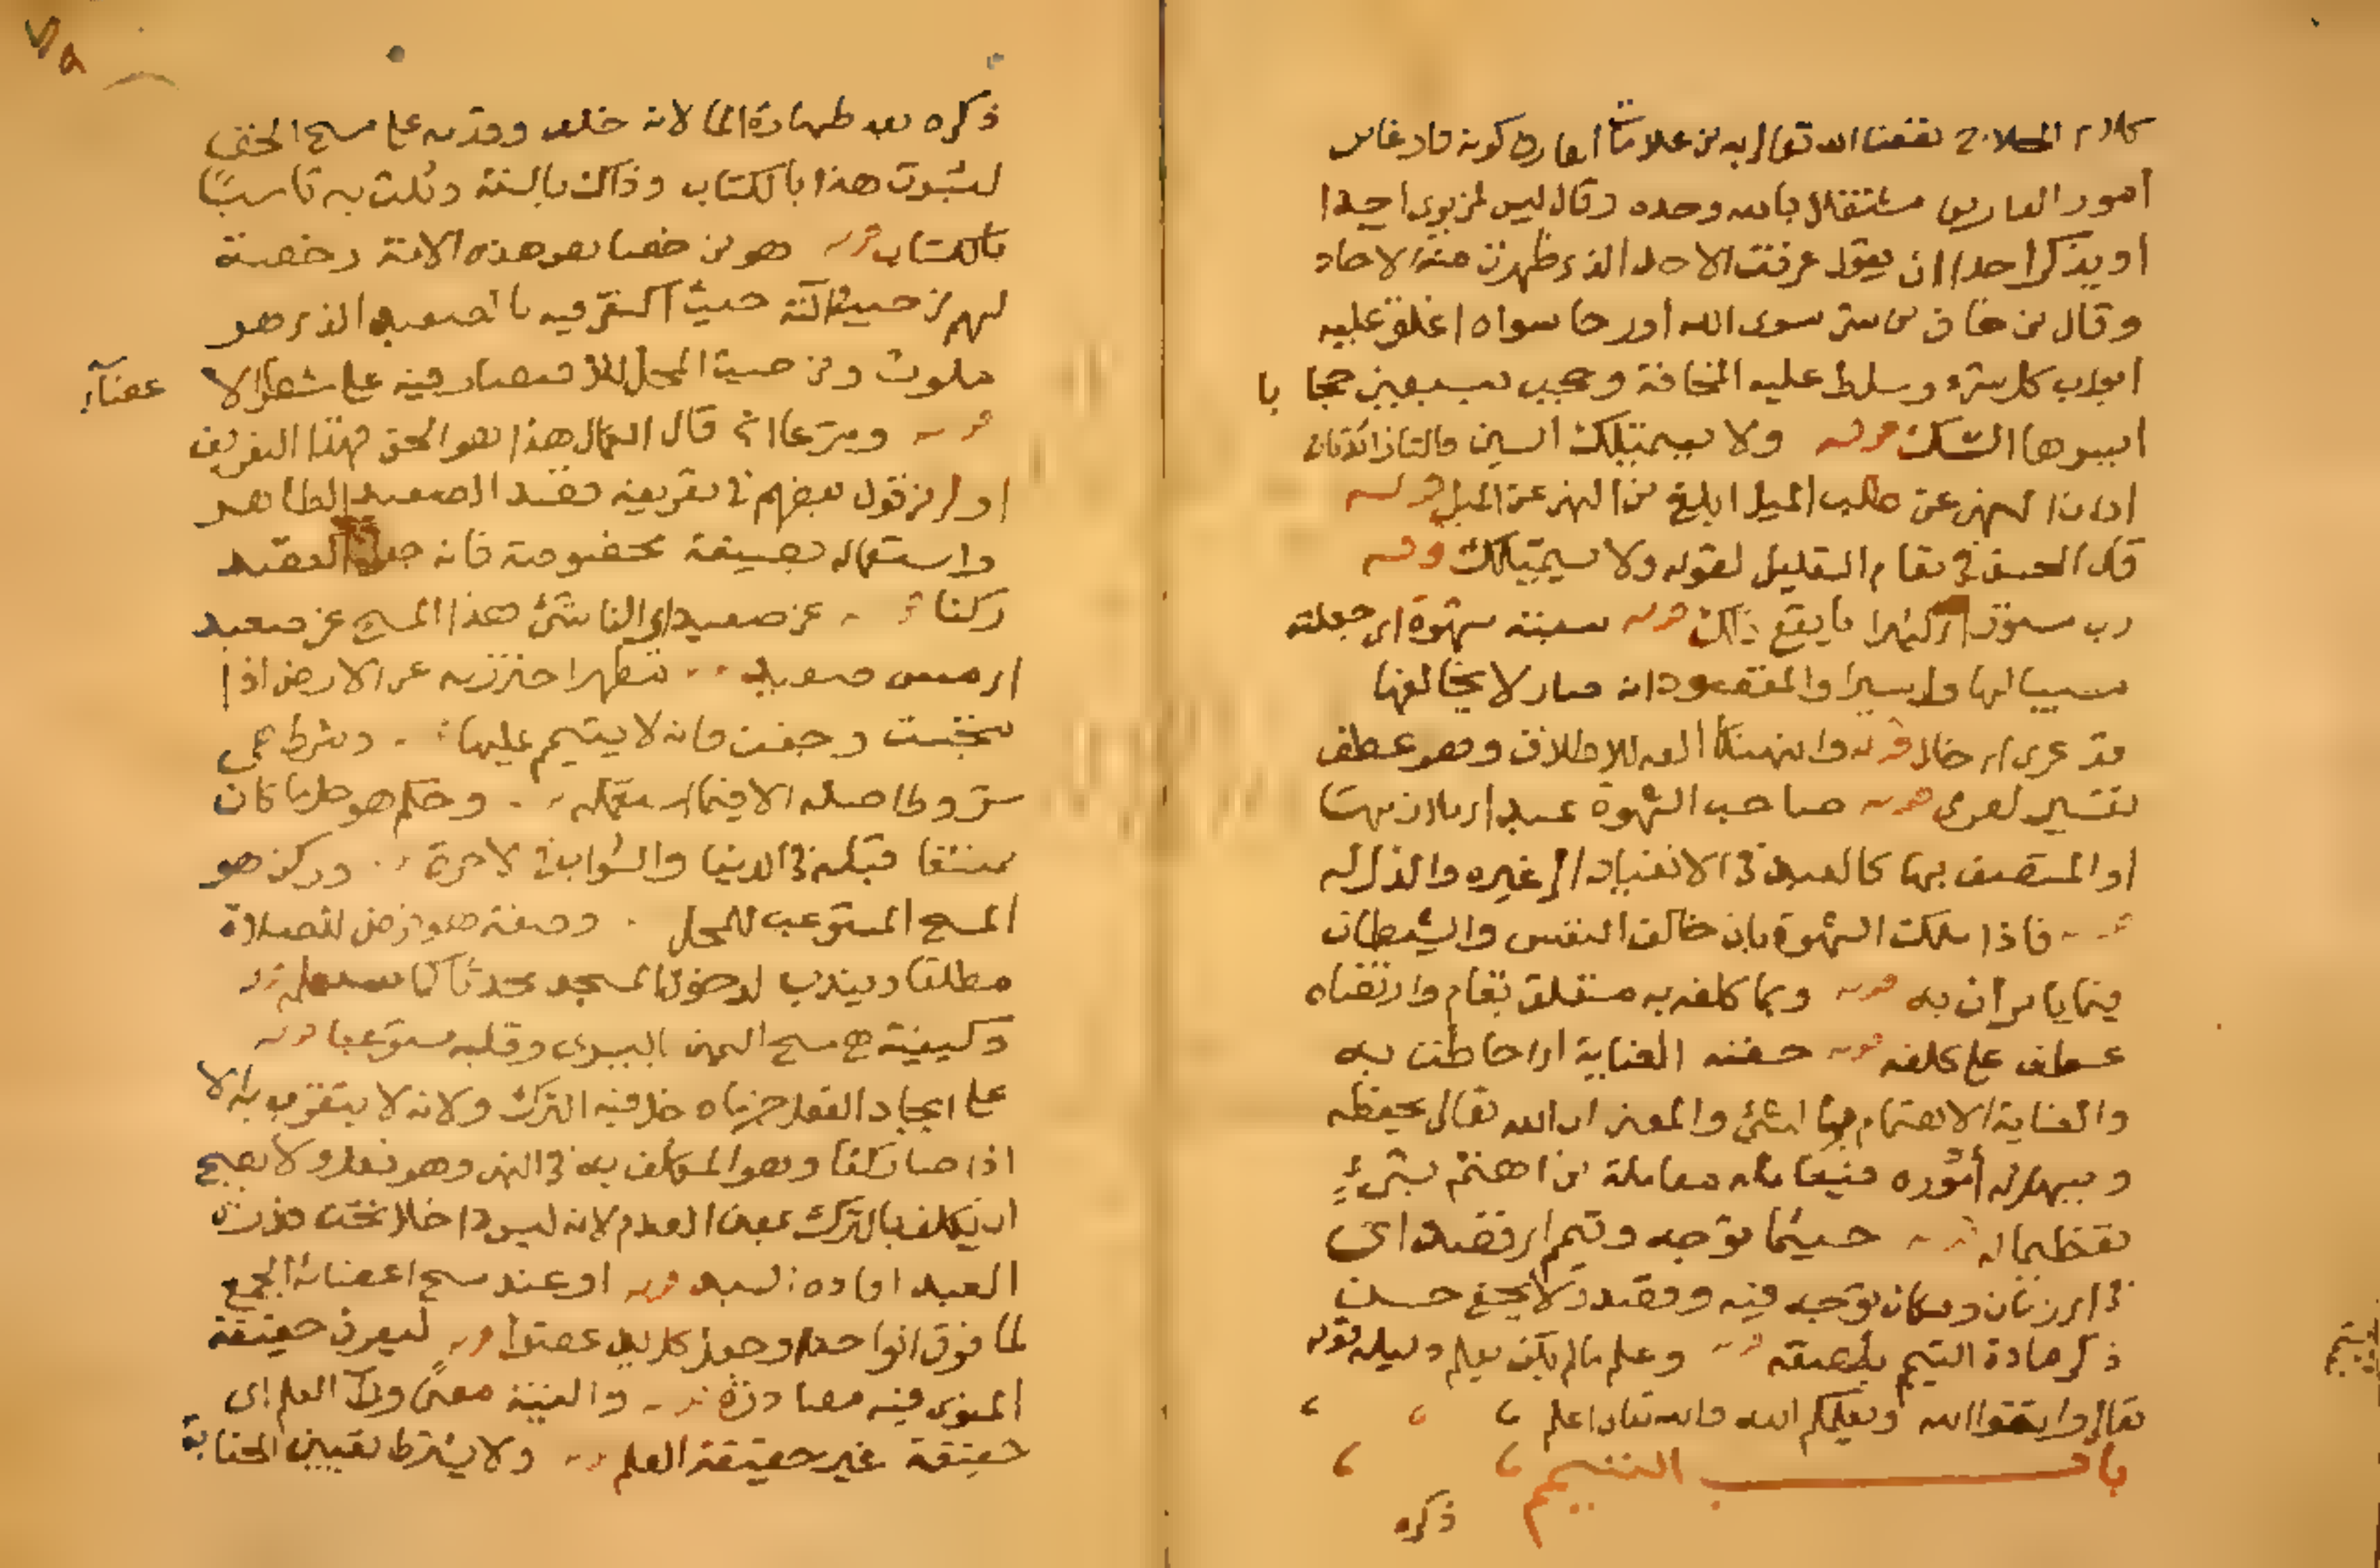 كلام الحلاج نفعنا الله تعالى به من علامات العارف كونه فارغا من
أمور الدارين مشتغلا بالله وحده وقال ليس لمن يرى احدا
او يذكر احدا ان يقول عرفت الاحد الذي ظهرت منه الاحاد
وقال من خاف من شيء سوى الله أو رجا سواه اغلق عليه
ابواب كل شيء وسلط عليه المخافة وحجب بسبعين حجابا
ايسرها الشك قوله ولا يستميلك السين والتاء زائدتان
او ان النهي عن طلب الميل ابلغ من النهي عن الميل قوله
قال الحسن في مقام التعليل لقوله ولا يستميلك قوله
رب مستور أي كثيرا ما يقع ذلك قوله سبته شهوة أي جعلته
سبيا لها واسيرا والمقصود انه صار لا يخالفها
قد عري أي خلا قوله وانهتكا الفه للاطلاق وهو عطف
تفسير لعري قوله صاحب الشهوة عبد أي ملازمها
او المتصف بها كالعبد في الانقياد إلى غيره والذل له
قوله فاذا ملك الشهوة بان خالف النفس والشيطان
فيما يأمران به قوله وبما كلفه به متعلق بقام وارتضاه
عطف على كلفه قوله حفته العناية أي احاطت به
والعناية الاهتمام بالشيء والمعنى ان الله تعالى يحفظه
ويسهل له أموره فيعامله معاملة من اهتم بشيء
تعظيما له قوله حيثما توجه وتيمم أي قصد أي
في أي زمان ومكان توجه فيه وقصد ولا يخفى حسن
ذكر مادة التيمم بلصقه قوله وعلم ما لم يكن يعلم دليله قوله
تعالى واتقوا الله ويعلمكم الله والله تعالى اعلم
باب التيمم
ذكره
ذكره بعد طهارة الماء لانه خلف وقدمه على مسح الخف
لثبوت هذا بالكتاب وذاك بالسنة وثلث به تأسيا
بالكتاب قوله هو من خصائص هذه الامة رخصة
لهم من حيث الآلة حيث اكتفي فيه بالصعيد الذي هو
ملوث ومن حيث المحل للاقتصار فيه على شطر الاعضاء
قوله وشرعا الخ قال الكمال هذا هو الحق فهذا التعريف
اولى من قول بعضهم في تعريفه قصد الصعيد الطاهر
واستعماله بصفة مخصوصة فانه جعل القصد
ركنا قوله عن صعيد أي الناشئ هذا المسح عن صعيد
أي مس صعيد قوله مطهر احترز به عن الارض اذا
نجست وجفت فانه لا يتيمم عليها قوله وشرط هي
شروط اصله الا فيما استعمله قوله وحكم هو حل ما كان
ممتنعا قبله في الدنيا والثواب في الآخرة قوله وركن هو
المسح المستوعب للمحل قوله وصفة هو فرض للصلاة
مطلقا ويندب لدخول المسجد محدثا كما سيعلم قوله
وكيفية هي مسح اليمنى باليسرى وقلبه مستوعبا قوله
على ايجاد الفعل جزما خرج فيه الترك ولانه لا يتقرب به الا
اذا صار كفا وهو المكلف به في النهي وهو فعل ولا يصح
ان يكلف بالترك بمعنى العدم لانه ليس داخلا تحت قدرة
العبد افاده السيد قوله او عند مسح اعضائه الجمع
لما فوق الواحد او جعل كل يد عضوا قوله ليعرف حقيقة
المنوي فيه مصادرة قوله والنية معنى وراء العلم أي
حقيقة غير حقيقة العلم قوله ولا يشترط تعيين الجنابة